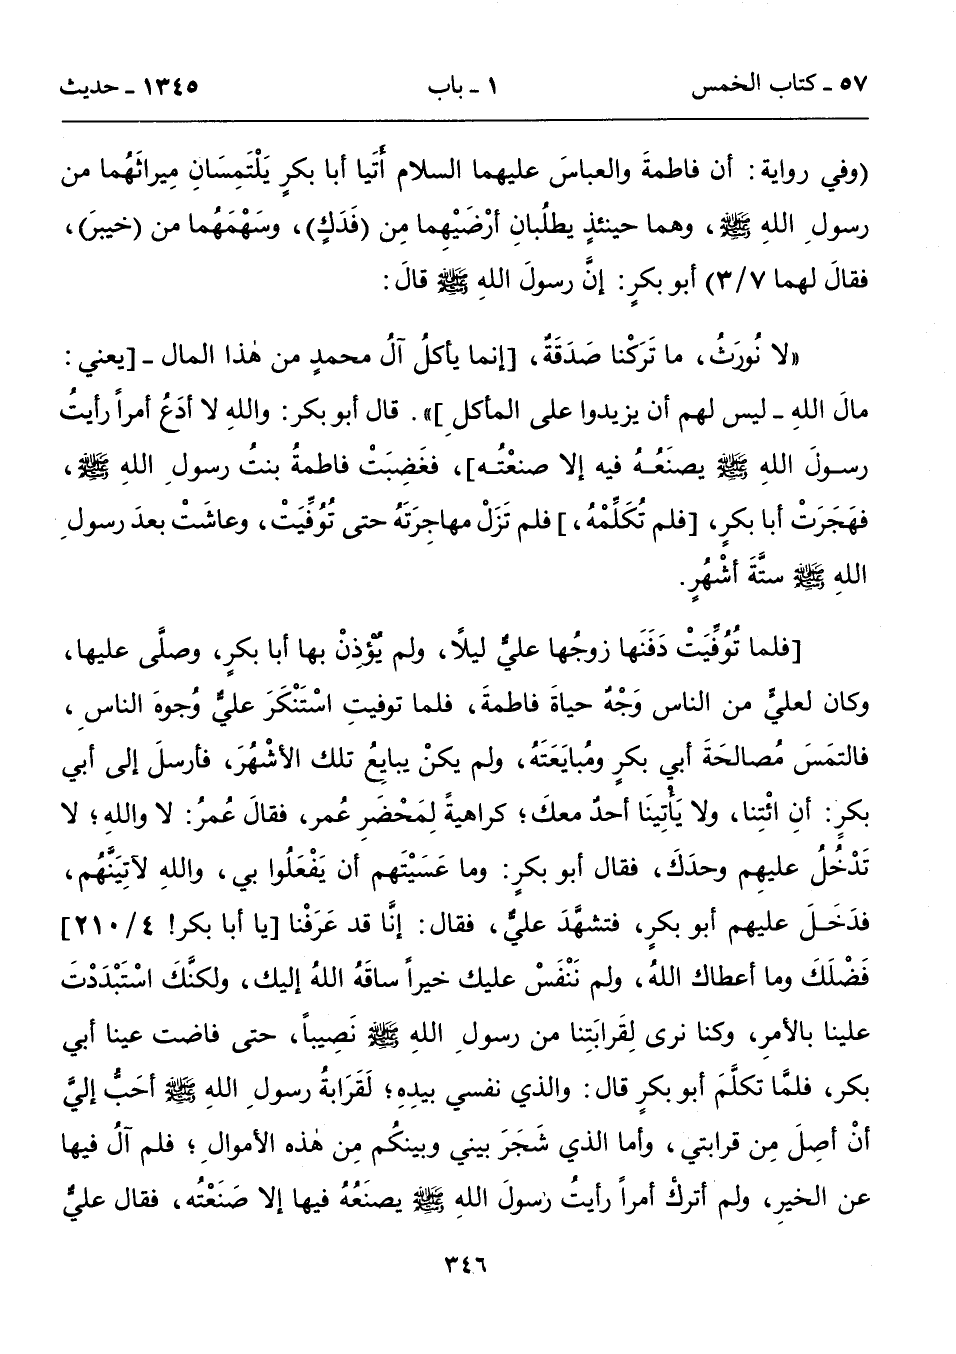 ٥٧ - كتاب الخمس ١ - باب ١٣٤٥ - حديث
(وفي رواية: أن فاطمةَ والعباسَ عليهما السلام أَتَيا أبا بكرٍ يَلْتَمِسَانِ مِيراثَهُما من
رسولِ اللهِ ﷺ، وهما حينئذٍ يطلُبانِ أرْضَيْهِما مِن (فَدَكٍ)، وسَهْمَهُما من (خيبرَ)،
فقالَ لهما ٧/٣) أبو بكرٍ: إنَّ رسولَ اللهِ ﷺ قالَ:
«لا نُورَثُ، ما تَرَكْنا صَدَقَةٌ، [إنما يأكلُ آلُ محمدٍ من هٰذا المال - [يعني:
مالَ اللهِ - ليس لهم أن يزيدوا على المأكلِ]». قال أبو بكر: واللهِ لا أدَعُ أمراً رأيتُ
رسولَ اللهِ ﷺ يصنَعُهُ فيه إلا صنعْتُه]، فغَضِبَتْ فاطمةُ بنتُ رسولِ اللهِ ﷺ،
فهَجَرَتْ أبا بكرٍ، [فلم تُكَلِّمْهُ،] فلم تَزَلْ مهاجِرَتَهُ حتى تُوُفِّيَتْ، وعاشَتْ بعدَ رسولِ
اللهِ ﷺ ستَّةَ أشْهُرٍ.
[فلما تُوُفِّيَتْ دَفَنَها زوجُها عليٌّ ليلًا، ولم يُؤْذِنْ بها أبا بكرٍ، وصلَّى عليها،
وكان لعليٍّ من الناس وَجْهٌ حياةَ فاطمةَ، فلما توفيتِ اسْتَنْكَرَ عليٌّ وُجوهَ الناسِ،
فالتمَسَ مُصالحَةَ أبي بكرٍ ومُبايَعَتَهُ، ولم يكنْ يبايِعُ تلك الأشْهُرَ، فأرسلَ إلى أبي
بكرٍ: أنِ ائْتِنا، ولا يَأْتِينَا أحدٌ معكَ؛ كراهيةً لِمَحْضَرِ عُمر، فقالَ عُمرُ: لا واللهِ؛ لا
تَدْخُلُ عليهِم وحدَكَ، فقال أبو بكرٍ: وما عَسَيْتَهم أن يَفْعَلُوا بي، واللهِ لآتِيَنَّهُم،
فدَخَلَ عليهم أبو بكرٍ، فتشهَّدَ عليٌّ، فقال: إنَّا قد عَرَفْنا [يا أبا بكر! ٤/٢١٠]
فَضْلَكَ وما أعطاك اللهُ، ولم نَنْفَسْ عليك خيراً ساقَهُ اللهُ إليك، ولكنَّكَ اسْتَبْدَدْتَ
علينا بالأمرِ، وكنا نرى لِقَرابَتِنا من رسولِ اللهِ ﷺ نَصِيباً، حتى فاضت عينا أبي
بكر، فلمَّا تكلَّمَ أبو بكرٍ قال: والذي نفسي بيدِهِ؛ لَقَرابةُ رسولِ اللهِ ﷺ أحَبُّ إليَّ
أنْ أصِلَ مِن قرابتي، وأما الذي شَجَرَ بيني وبينكُم مِن هٰذه الأموالِ؛ فلم آلُ فيها
عن الخيرِ، ولم أتركْ أمراً رأيتُ رسولَ اللهِ ﷺ يصنَعُهُ فيها إلا صَنَعْتُه، فقال عليٌّ
٣٤٦